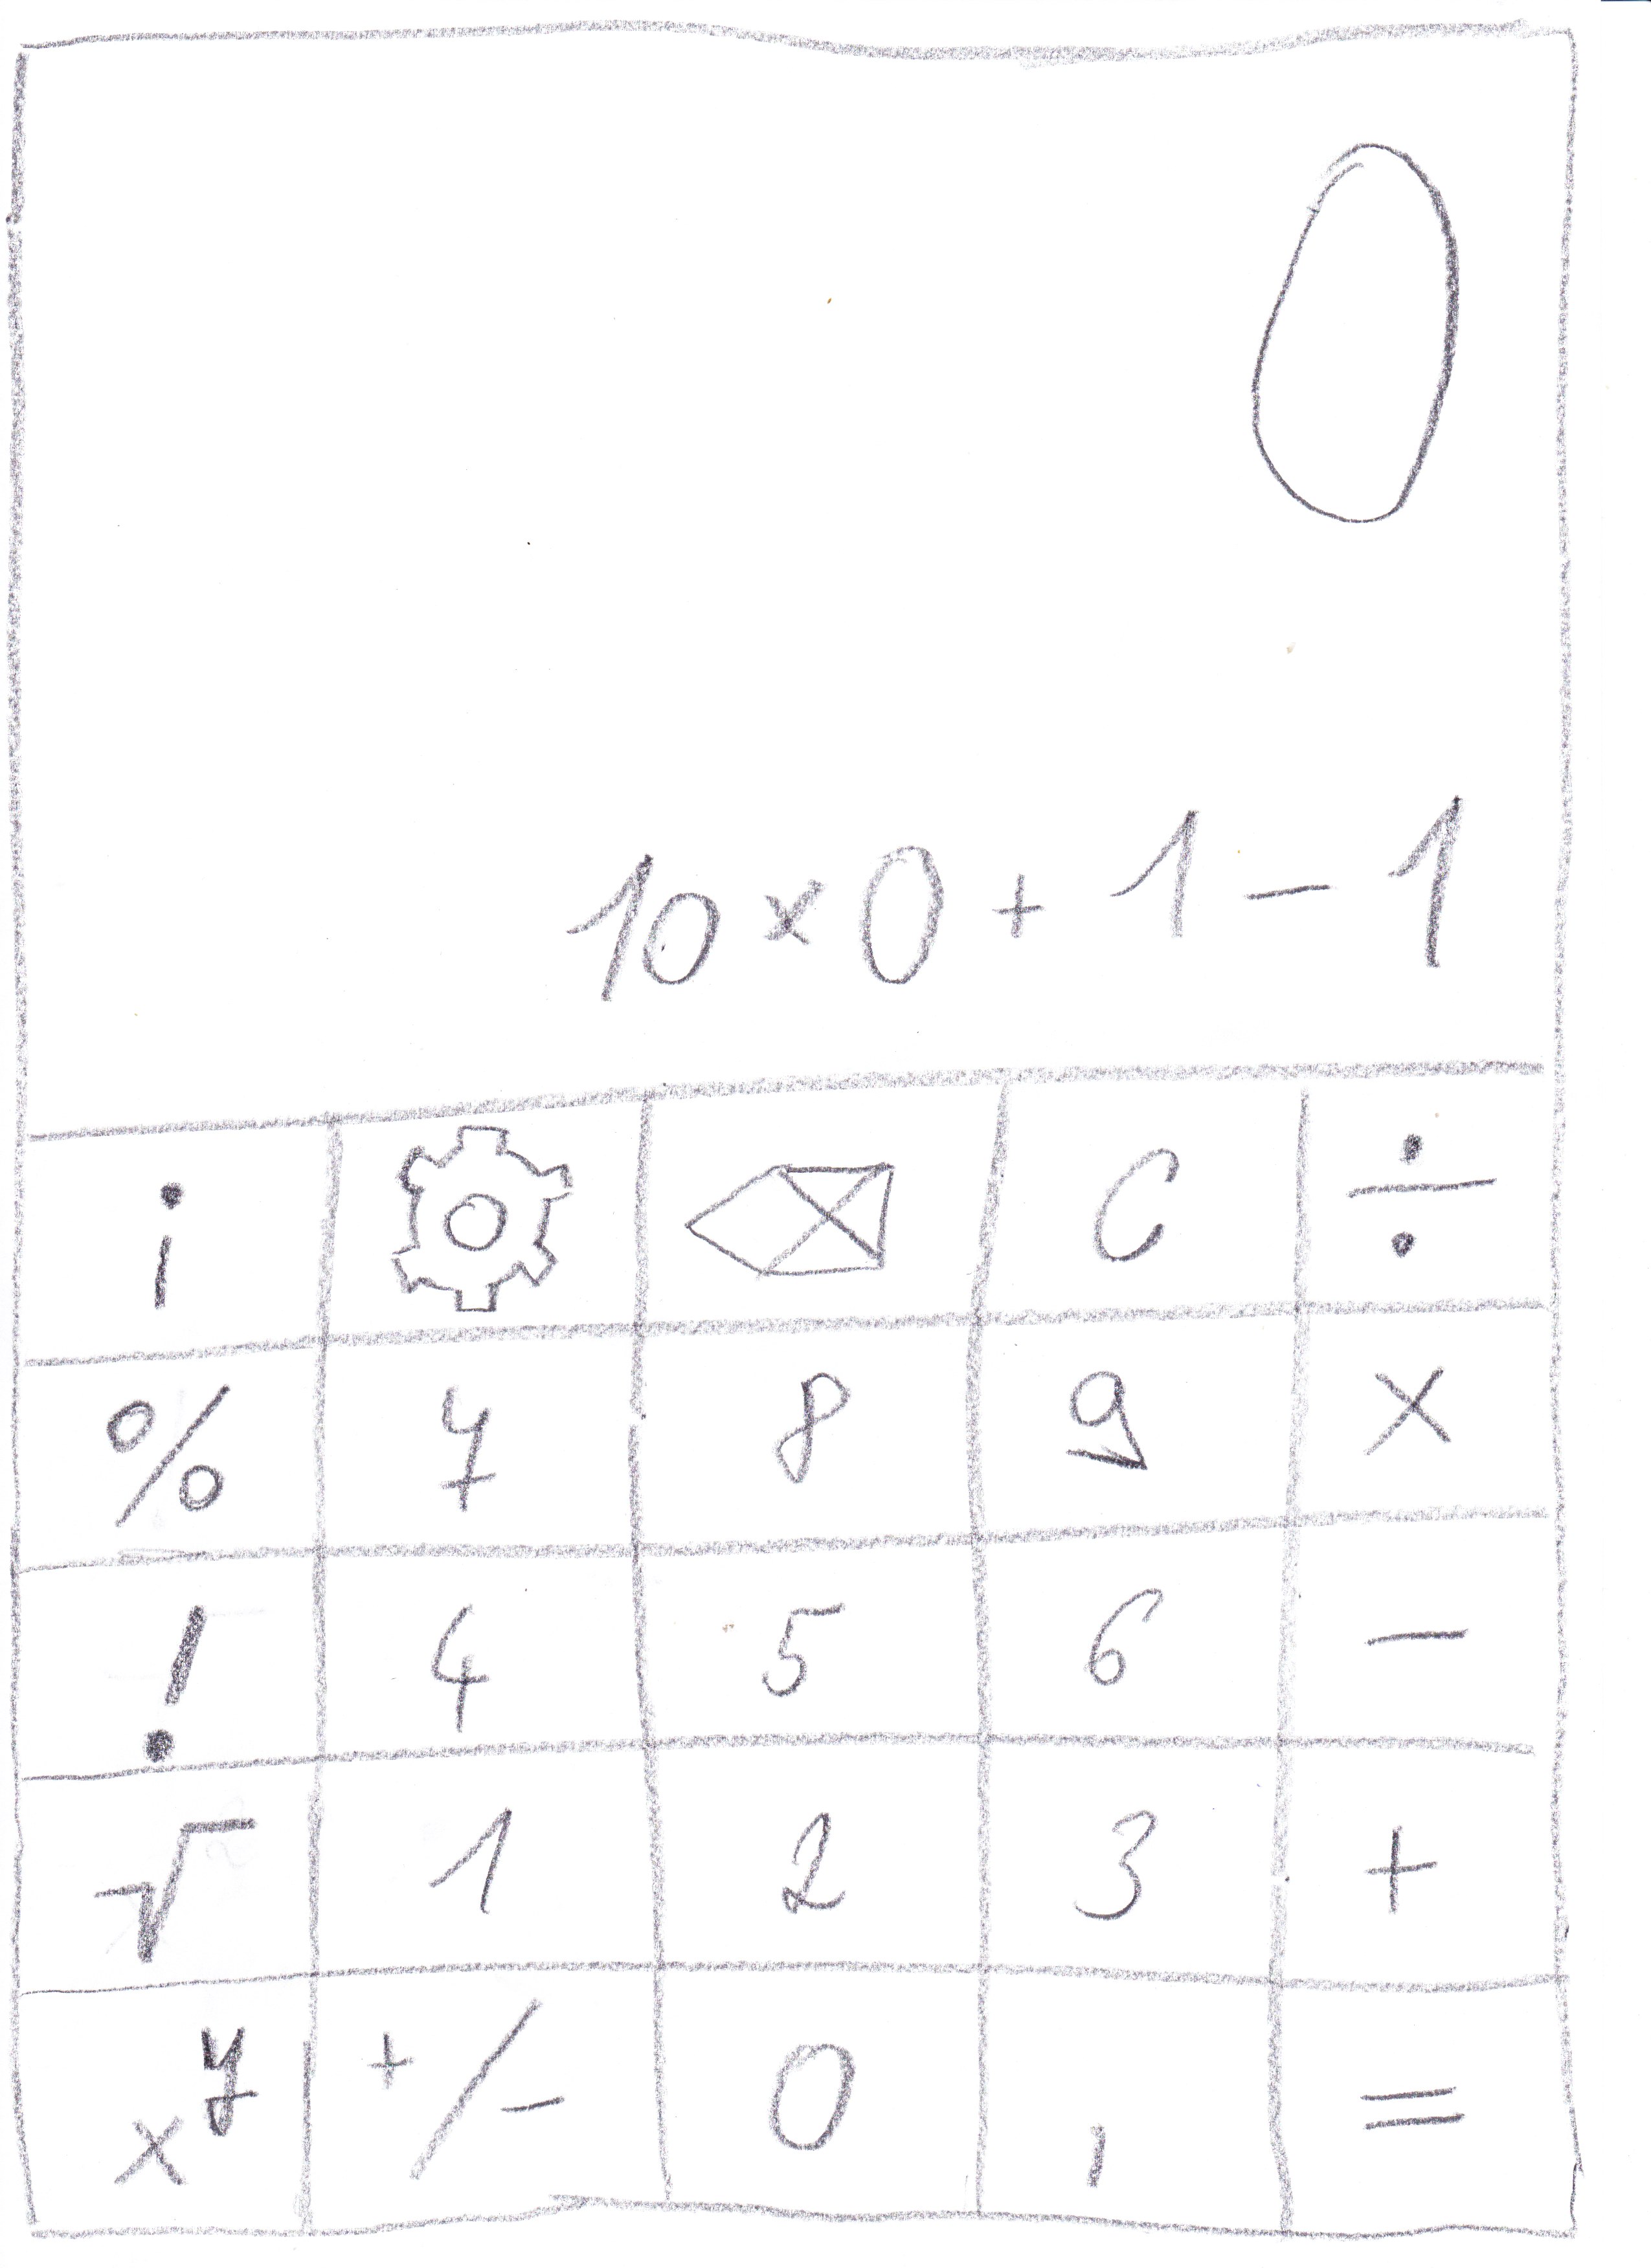 0
10 × 0 + 1 − 1
i C ÷
% 7 8 9 ×
! 4 5 6 −
√ 1 2 3 +
xʸ +/− 0 , =